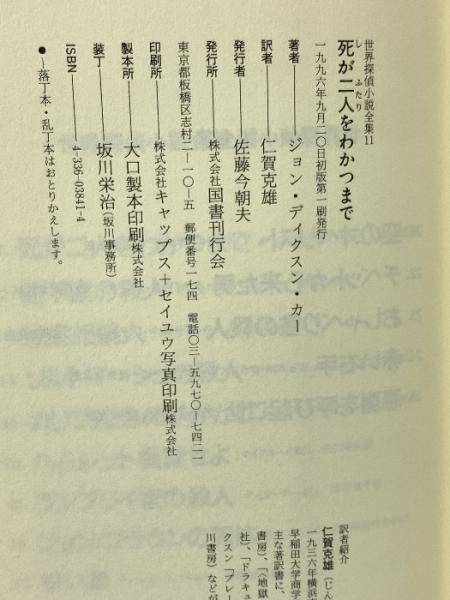 世界探偵小説全集11
死が二人をわかつまで
し ふたり
一九九六年九月二〇日初版第一刷発行
著者――ジョン・ディクスン・カー
訳者――仁賀克雄
発行者――佐藤今朝夫
発行所――株式会社国書刊行会
東京都板橋区志村二―一〇―一五 郵便番号一七四 電話〇三―五九七〇―七四二一
印刷所――株式会社キャップス+セイユウ写真印刷株式会社
製本所――大口製本印刷株式会社
装丁――坂川栄治(坂川事務所)
ISBN――4-336-03841-4
●―落丁本・乱丁本はおとりかえします。
訳者紹介
仁賀克雄(じん
一九三六年横浜
早稲田大学商学
主な著訳書に、
書房)、「〈地獄
社)、「ドラキュ
クスン「プレー
川書房)などが